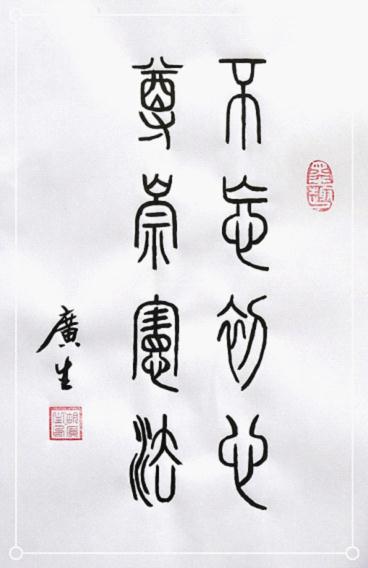 不忘初心
尊崇憲法
廣生